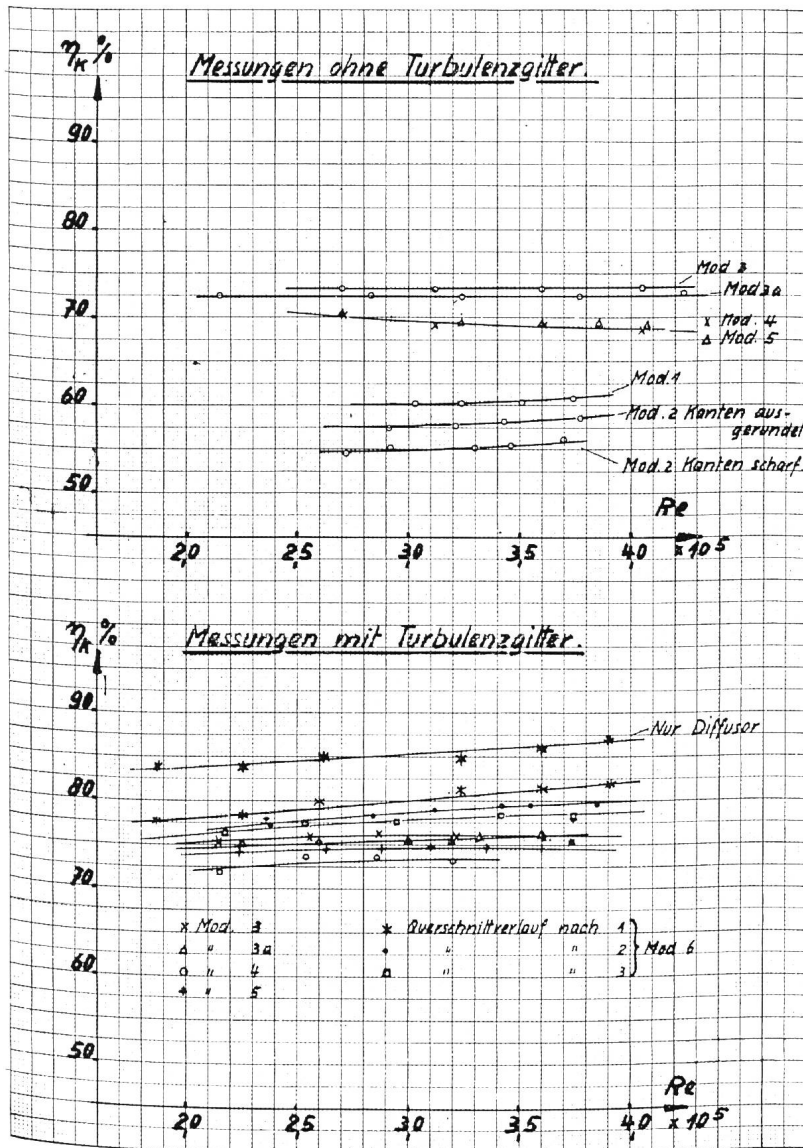 ηK %
Messungen ohne Turbulenzgitter.
90
80
Mod 3
Mod 3a
70
x Mod. 4
△ Mod. 5
Mod. 1
60
Mod. 2 Kanten aus-
gerundet
Mod. 2 Kanten scharf.
50
Re
2,0 2,5 3,0 3,5 4,0 x 10⁵
ηK %
Messungen mit Turbulenzgitter.
90
Nur Diffusor
80
70
x Mod. 3 * Querschnittverlauf nach 1
△ " 3a • " " 2 Mod 6
60
o " 4 □ " " 3
+ " 5
50
Re
2,0 2,5 3,0 3,5 4,0 x 10⁵